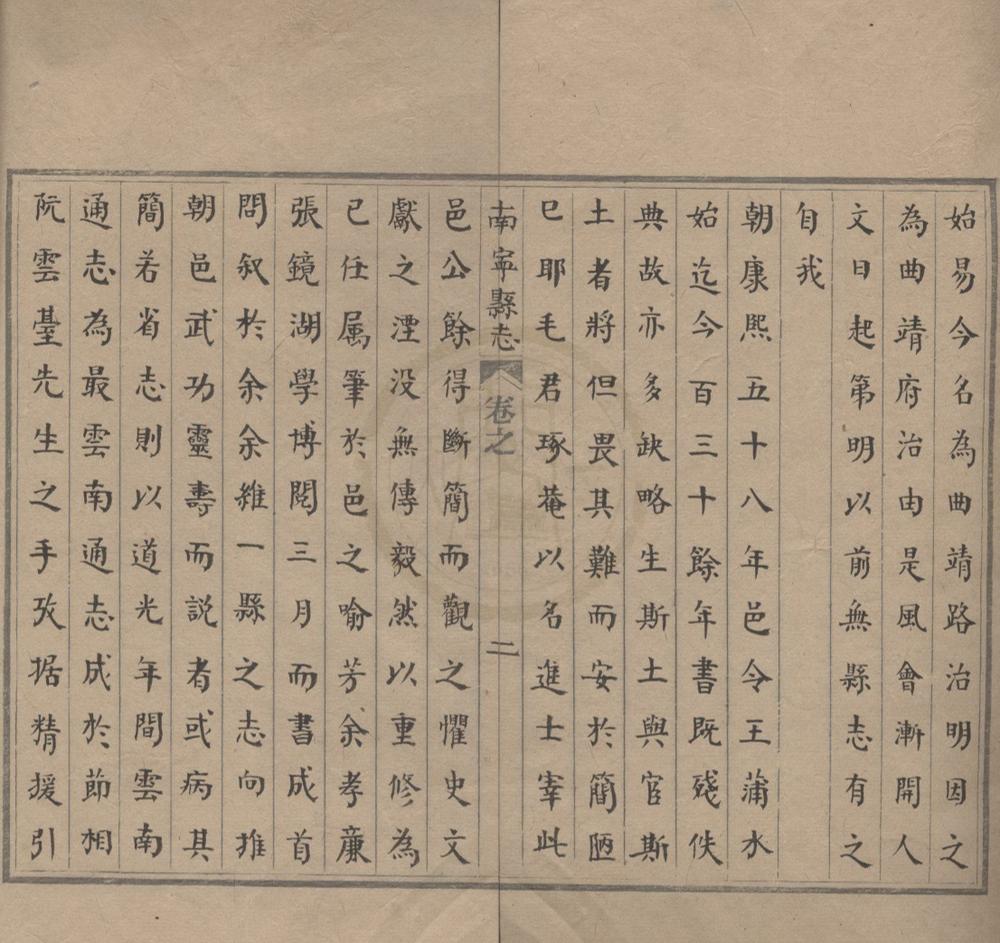 始易今名為曲靖路治明因之
為曲靖府治由是風會漸開人
文日起第明以前無縣志有之
自我
朝康熙五十八年邑令王蒲水
始迄今百三十餘年書既殘佚
典故亦多缺略生斯土與官斯
土者將但畏其難而安於簡陋
巳耶毛君琢菴以名進士宰此
南寧縣志 卷之 二
邑公餘得斷簡而觀之懼史文
獻之湮没無傳毅然以重修為
己任属筆於邑之喻芳余孝廉
張鏡湖學博閲三月而書成首
問叙於余余維一縣之志向推
朝邑武功靈壽而説者或病其
簡若省志則以道光年間雲南
通志為最雲南通志成於節相
阮雲臺先生之手攷据精援引